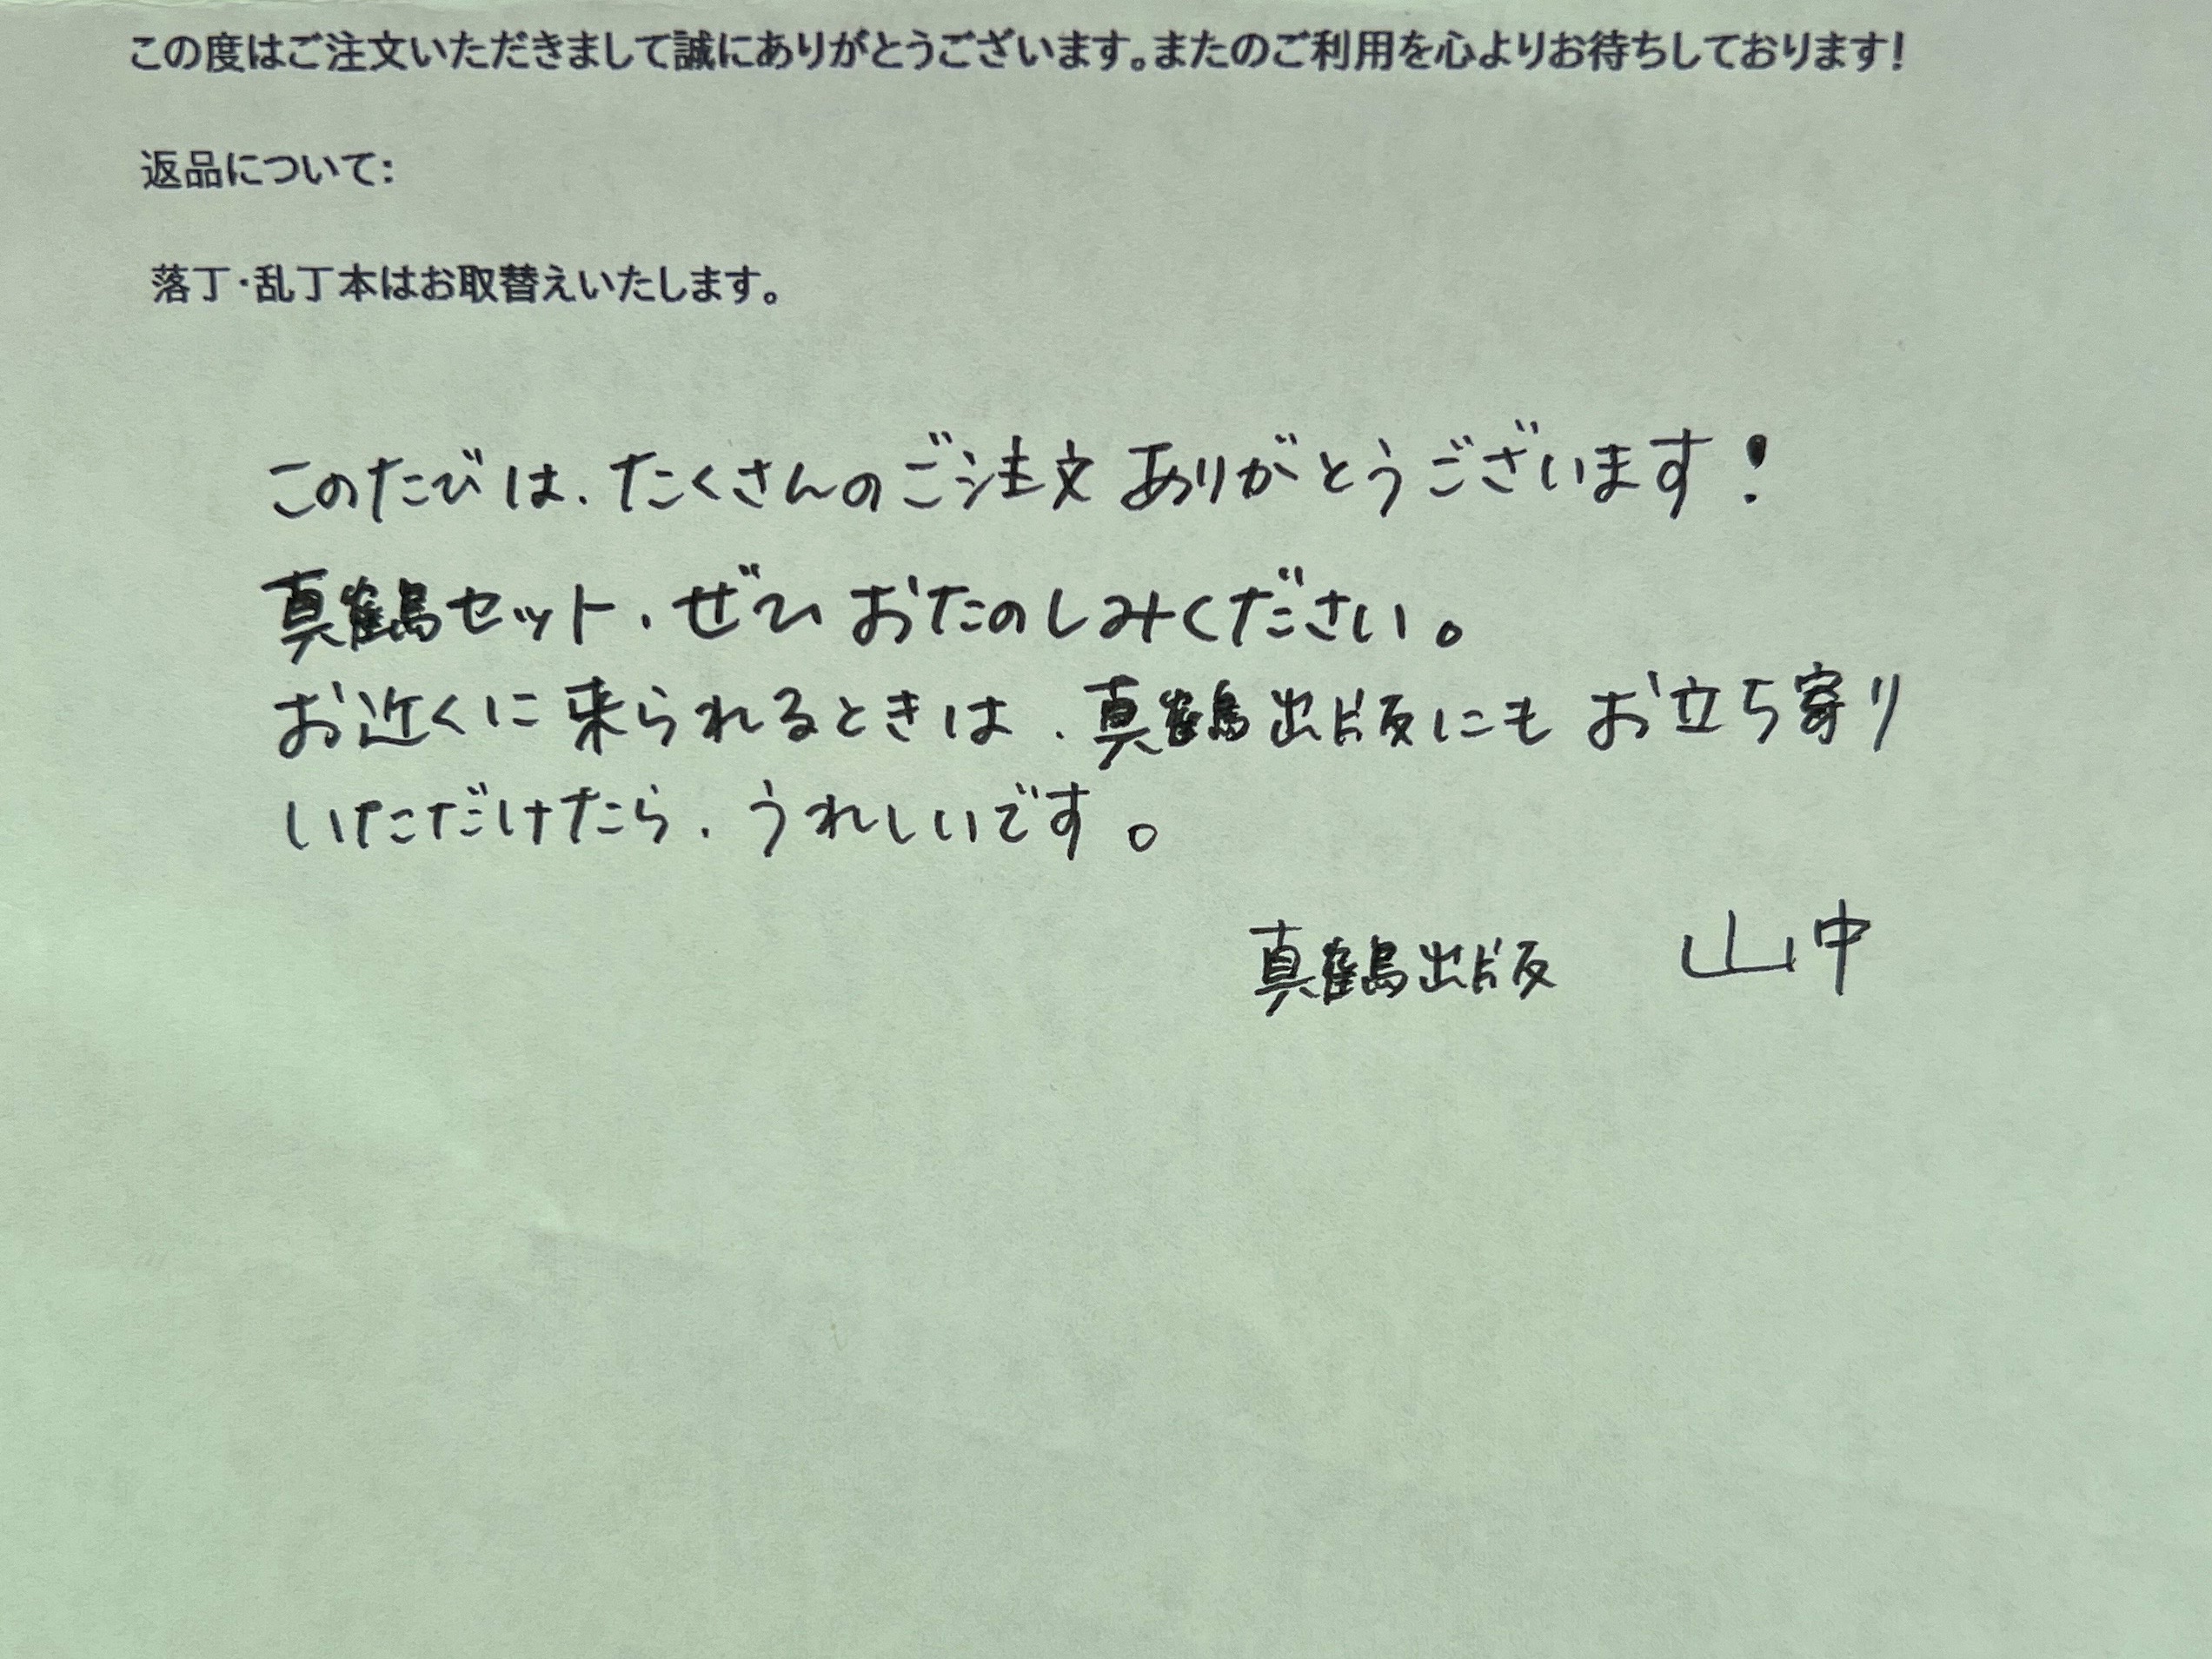 この度はご注文いただきまして誠にありがとうございます。またのご利用を心よりお待ちしております!
返品について:
落丁・乱丁本はお取替えいたします。
このたびは、たくさんのご注文ありがとうございます!
真鶴セット、ぜひおたのしみください。
お近くに来られるときは、真鶴出版にもお立ち寄り
いただけたら、うれしいです。
真鶴出版 山中